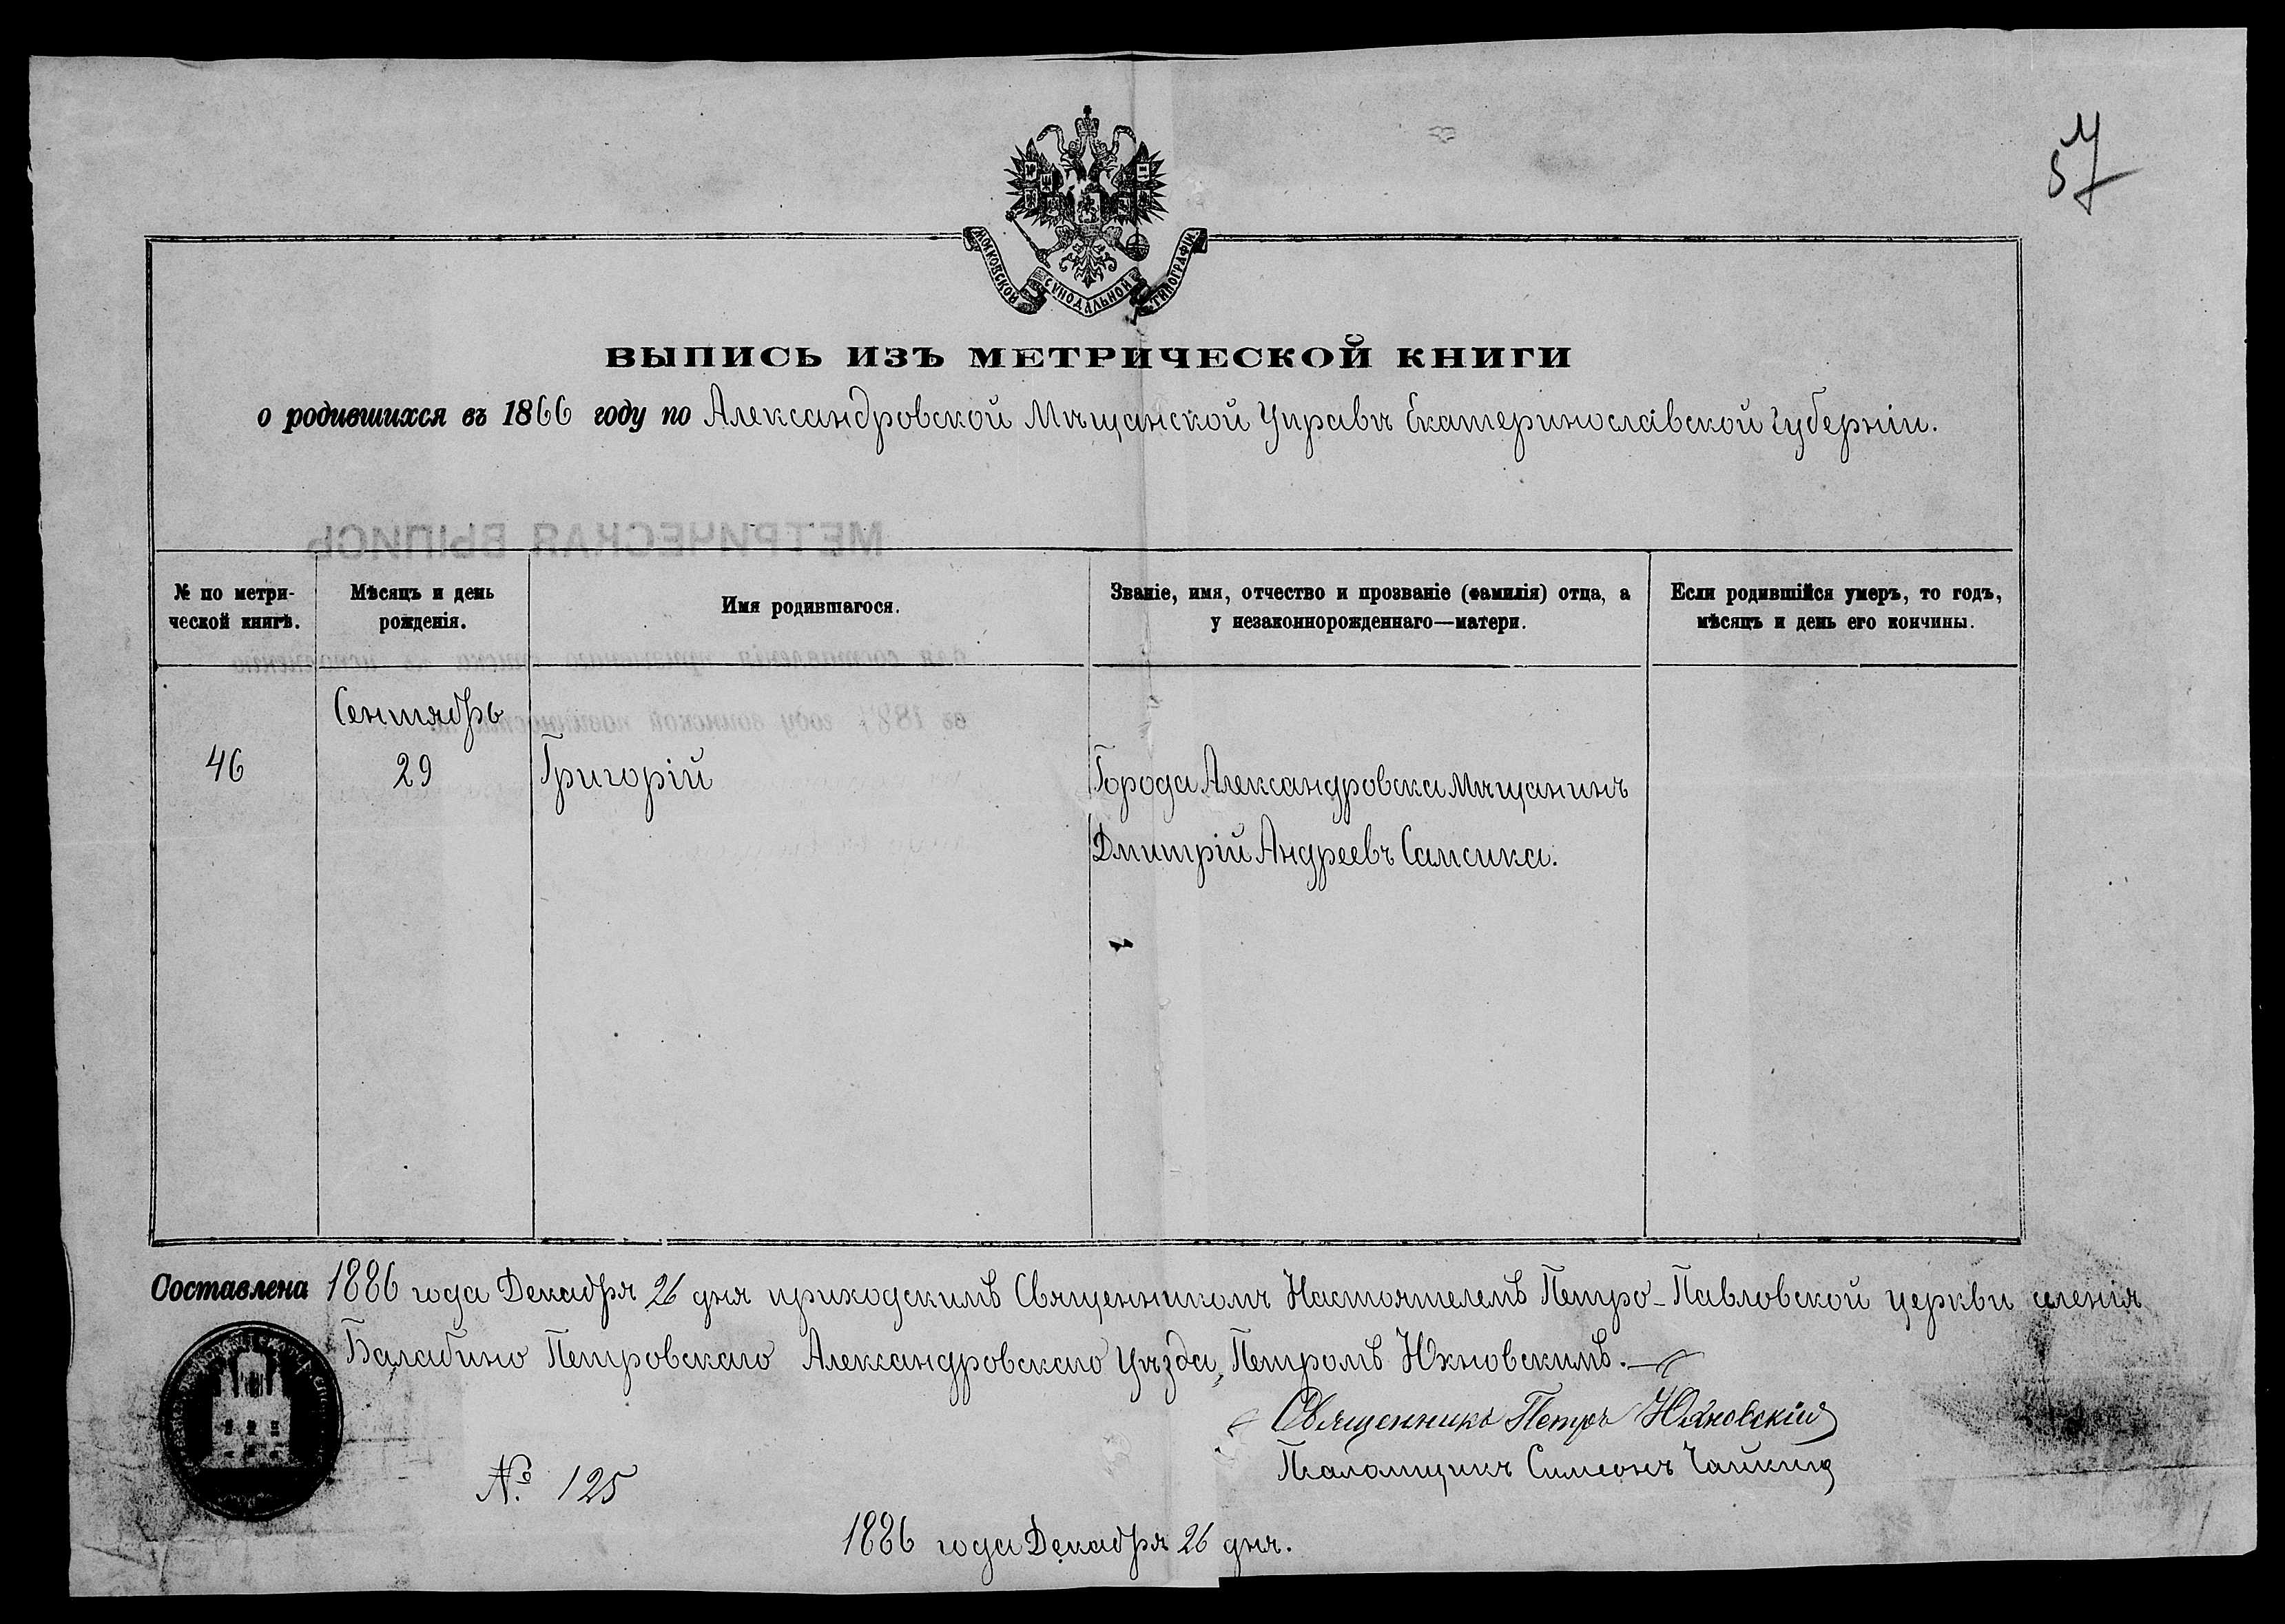 57
МОСКОВСКОЙ СѴНОДАЛЬНОЙ ТИПОГРАФІИ
ВЫПИСЬ ИЗЪ МЕТРИЧЕСКОЙ КНИГИ
о родившихся въ 1866 году по Александровской Мѣщанской Управѣ Екатеринославской губерніи.
МЕТРИЧЕСКАЯ ВЫПИСЬ
№ по метри-
ческой книгѣ.
Мѣсяцъ и день
рожденія.
Имя родившагося.
Званіе, имя, отчество и прозваніе (фамилія) отца, а
у незаконнорожденнаго—матери.
Если родившійся умеръ, то годъ,
мѣсяцъ и день его кончины.
для составленія призывного списка къ исполненію
въ 1887 году воинской повинности
Сентябрь
46
29
Григорій
Города Александровска Мѣщанинъ
Дмитрій Андреевъ Самсика.
Составлена 1886 года Декабря 26 дня приходскимъ Священникомъ Настоятелемъ Петро-Павловской церкви селенія
Балабино Петровскаго Александровскаго Уѣзда, Петромъ Юхновскимъ.
Священникъ Петръ Юхновскій
Псаломщикъ Симеонъ Чайкинъ
№ 125
1886 года Декабря 26 дня.